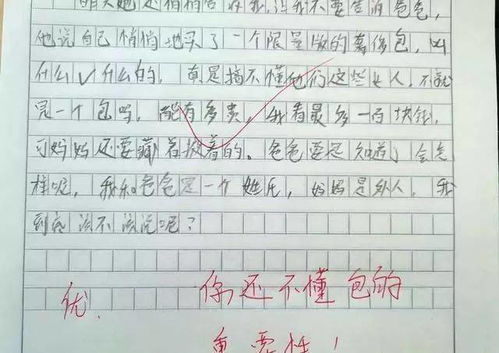 明天她还悄悄告诉我,让我不要告诉爸爸,
他说自己悄悄地买了一个限量版的奢侈包,叫
什么V什么的,真是搞不懂他们这些女人,不就
是一个包吗,能有多贵,我看最多一百块钱,
可妈妈还要藏着掖着的。爸爸要是知道了会怎
样呢,我和爸爸是一个姓氏,妈妈是外人,我
到底该不该说呢?
优. 你还不懂包的
重要性!